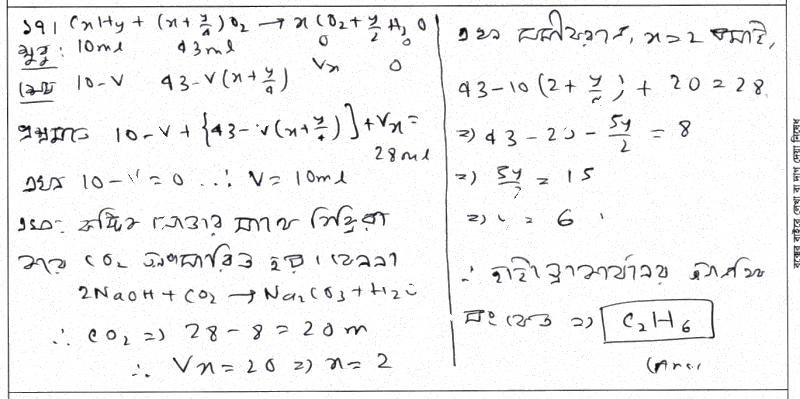 ১৭। CxHy + (x+y/4)O₂ → xCO₂ + y/2 H₂O
শুরু: 10ml 43ml 0 0
শেষ 10-V 43-V(x+y/4) Vx 0
প্রশ্নমতে 10-V + {43-V(x+y/4)} + Vx =
28ml
এখন 10-V = 0 ∴ V = 10ml
এখন কস্টিক সোডার সাথে বিক্রিয়া
করে CO₂ অপসারিত হয়। কেননা
2NaOH + CO₂ → Na₂CO₃ + H₂O
∴ CO₂ => 28-8 = 20m
∴ Vx = 20 => x = 2
এখন সমীকরণে, x=2 বসাই,
43-10(2+y/4) + 20 = 28
=> 43-20-5y/2 = 8
=> 5y/2 = 15
=> y = 6
∴ হাইড্রোকার্বনের আণবিক
সংকেত => C₂H₆
(Ans)
বক্সের বাইরে লেখা বা দাগ দেয়া নিষেধ